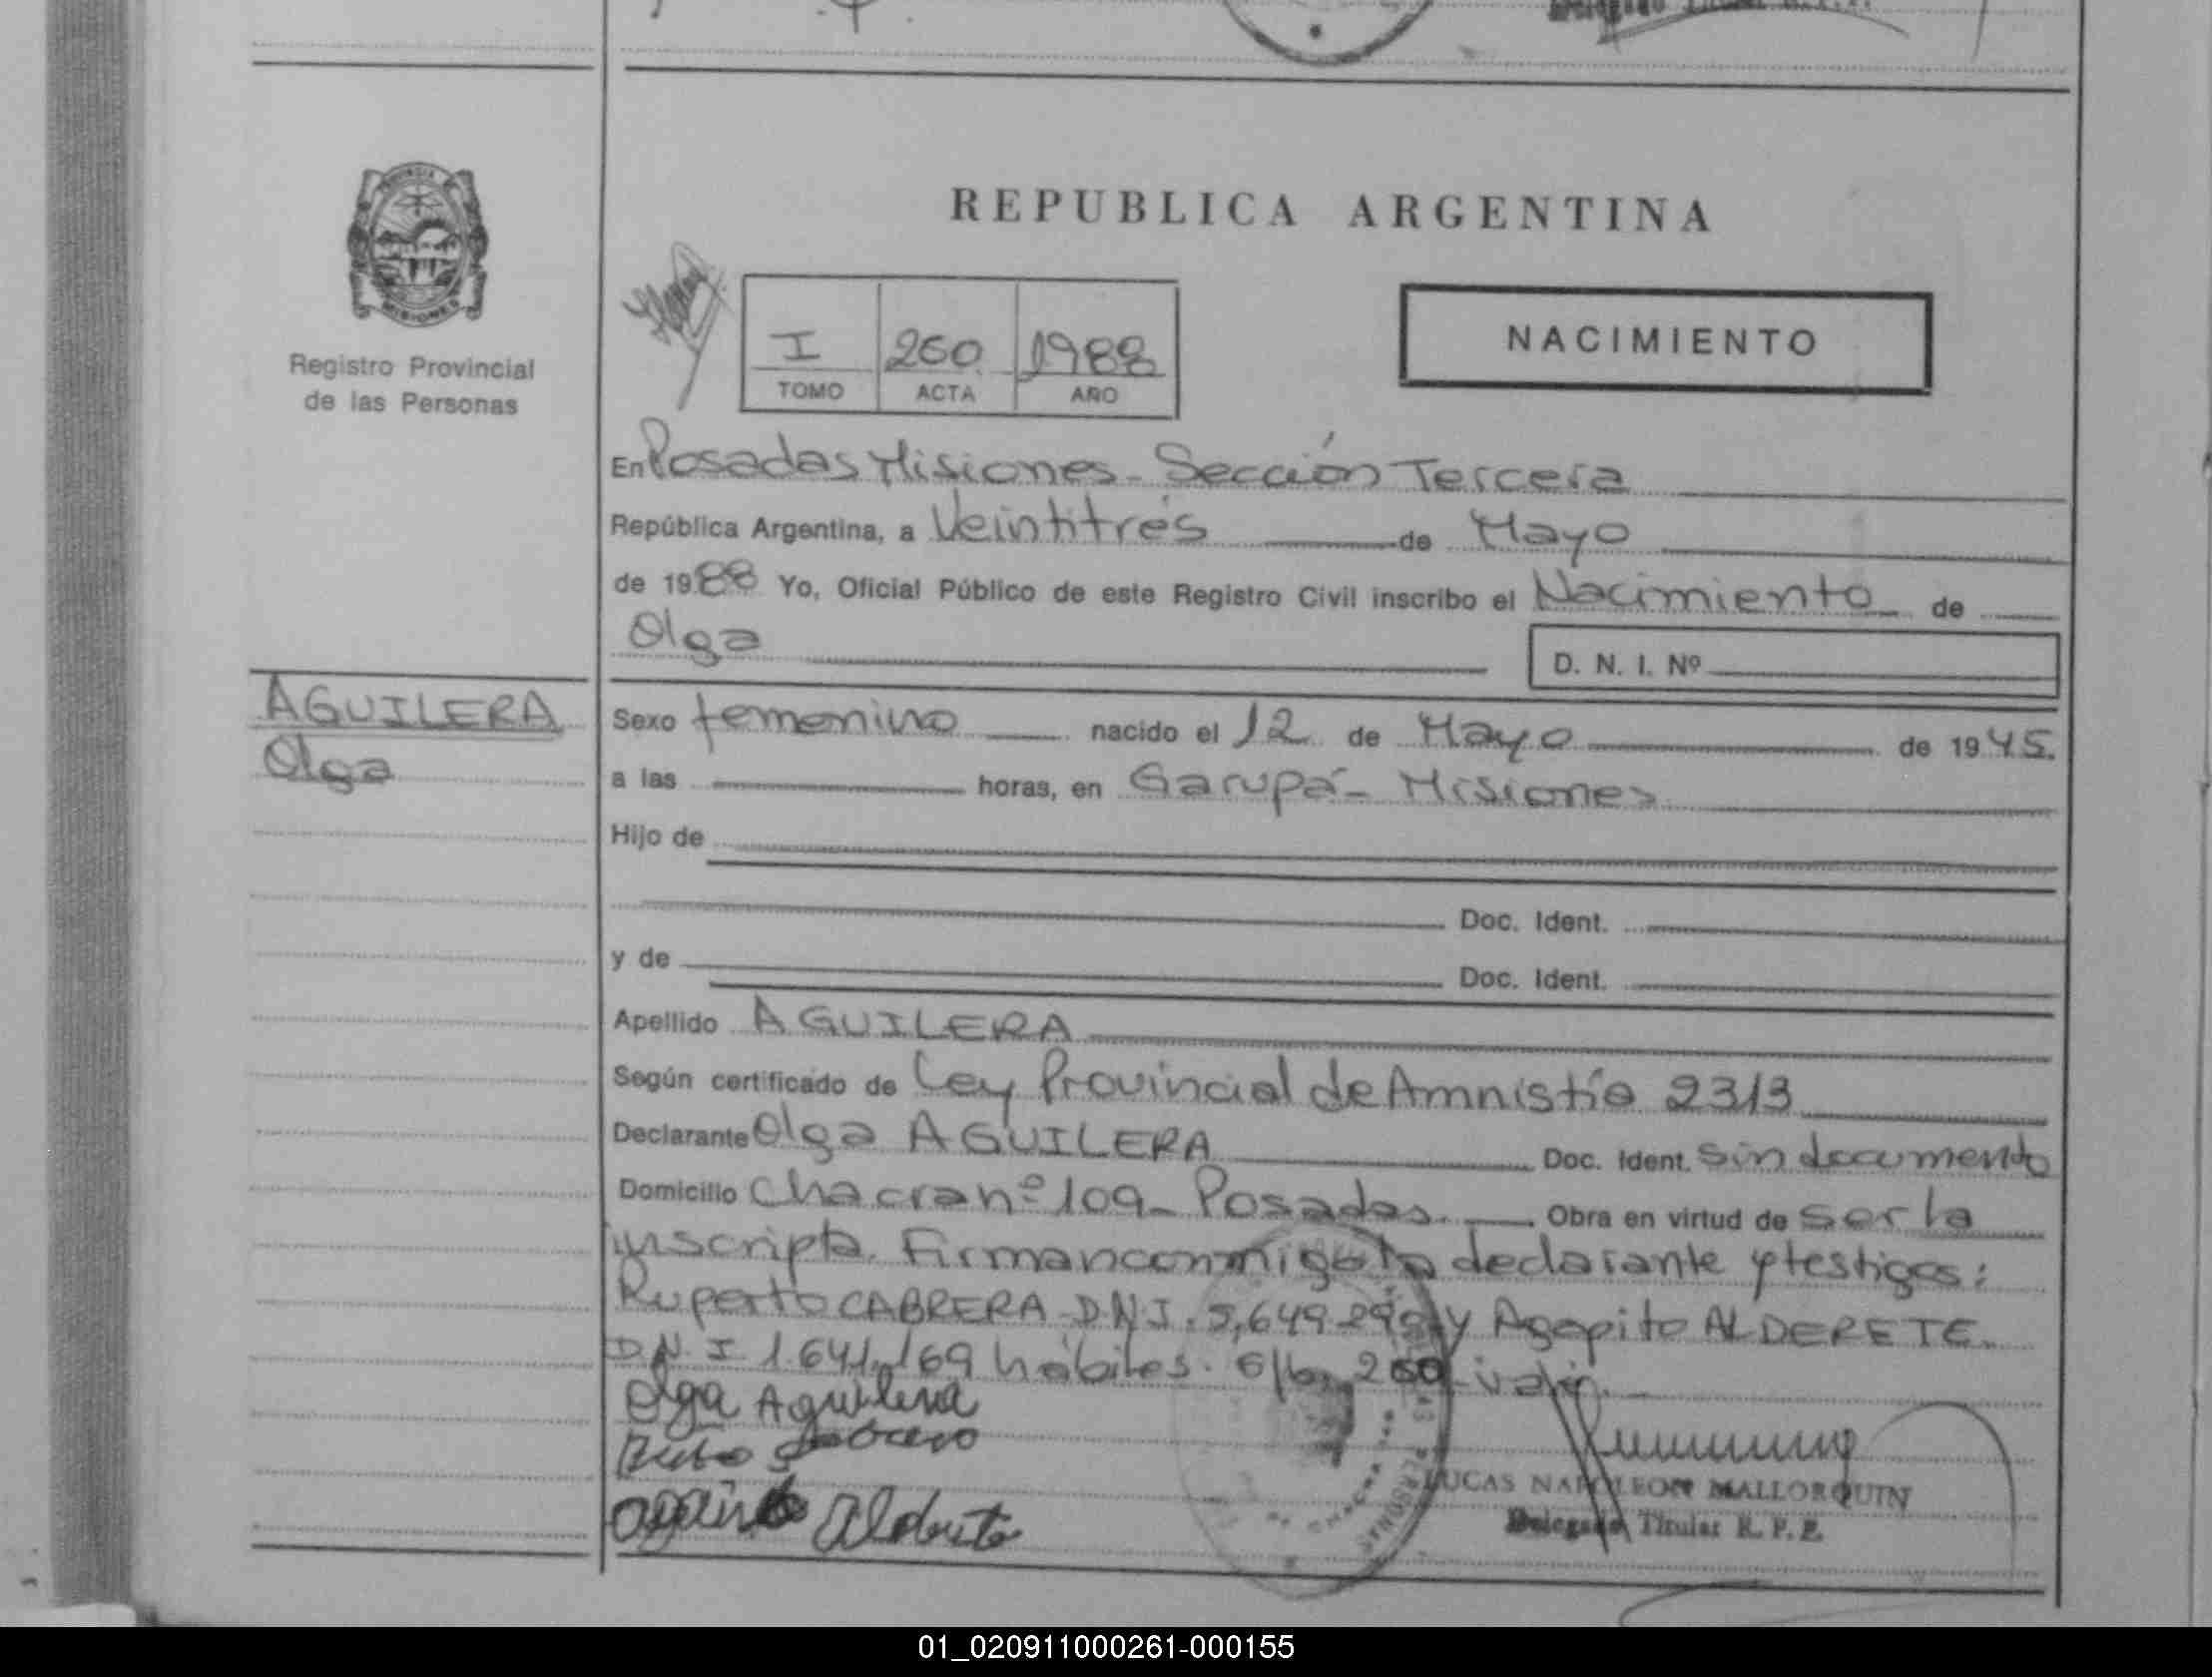 REPUBLICA ARGENTINA
Registro Provincial
de las Personas
I 260 1988
TOMO ACTA AÑO
NACIMIENTO
En Posadas Misiones - Sección Tercera
República Argentina, a Veintitrés de Mayo
de 1988 Yo, Oficial Público de este Registro Civil inscribo el Nacimiento de
Olga
D. N. I. Nº
AGUILERA
Olga
Sexo femenino nacido el 12 de Mayo de 1945.
a las horas, en Garupá - Misiones
Hijo de
Doc. Ident.
y de Doc. Ident.
Apellido AGUILERA
Según certificado de Ley Provincial de Amnistía 2313
Declarante Olga AGUILERA Doc. Ident. Sin documento
Domicilio Chacra nº 109 - Posadas. Obra en virtud de Ser la
inscripta. Firman conmigo la declarante y testigos:
Ruperto CABRERA D.N.I. y Agapito ALDERETE.
D.N.I 1.641.169 hábiles. 260
Olga Aguilera
LUCAS NAPOLEON MALLORQUIN
Delegado Titular R. P. P.
01_020911000261-000155